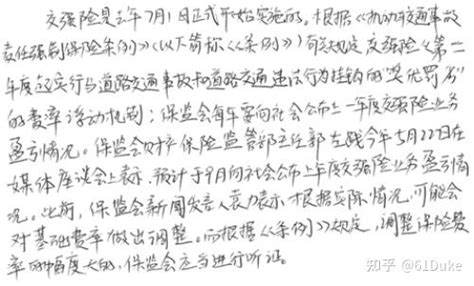 交强险是去年7月1日正式开始实施的。根据《机动车交通事故
责任强制保险条例》(以下简称《条例》)有关规定,交强险《第二
年度起实行与道路交通事故和道路交通违法行为挂钩的"奖优罚劣"
的费率浮动机制;保监会每年要向社会公布上一年度交强险业务
盈亏情况。保监会财产保险监管部主任郭左践今年5月22日在
媒体座谈会上表示,预计于9月向社会公布上年度交强险业务盈亏情
况。此前,保监会新闻发言人袁力表示,根据实际情况,可能会
对基础费率做出调整。而根据《条例》规定,调整保险费
率的幅度大的,保监会应当进行听证。
知乎 @61Duke